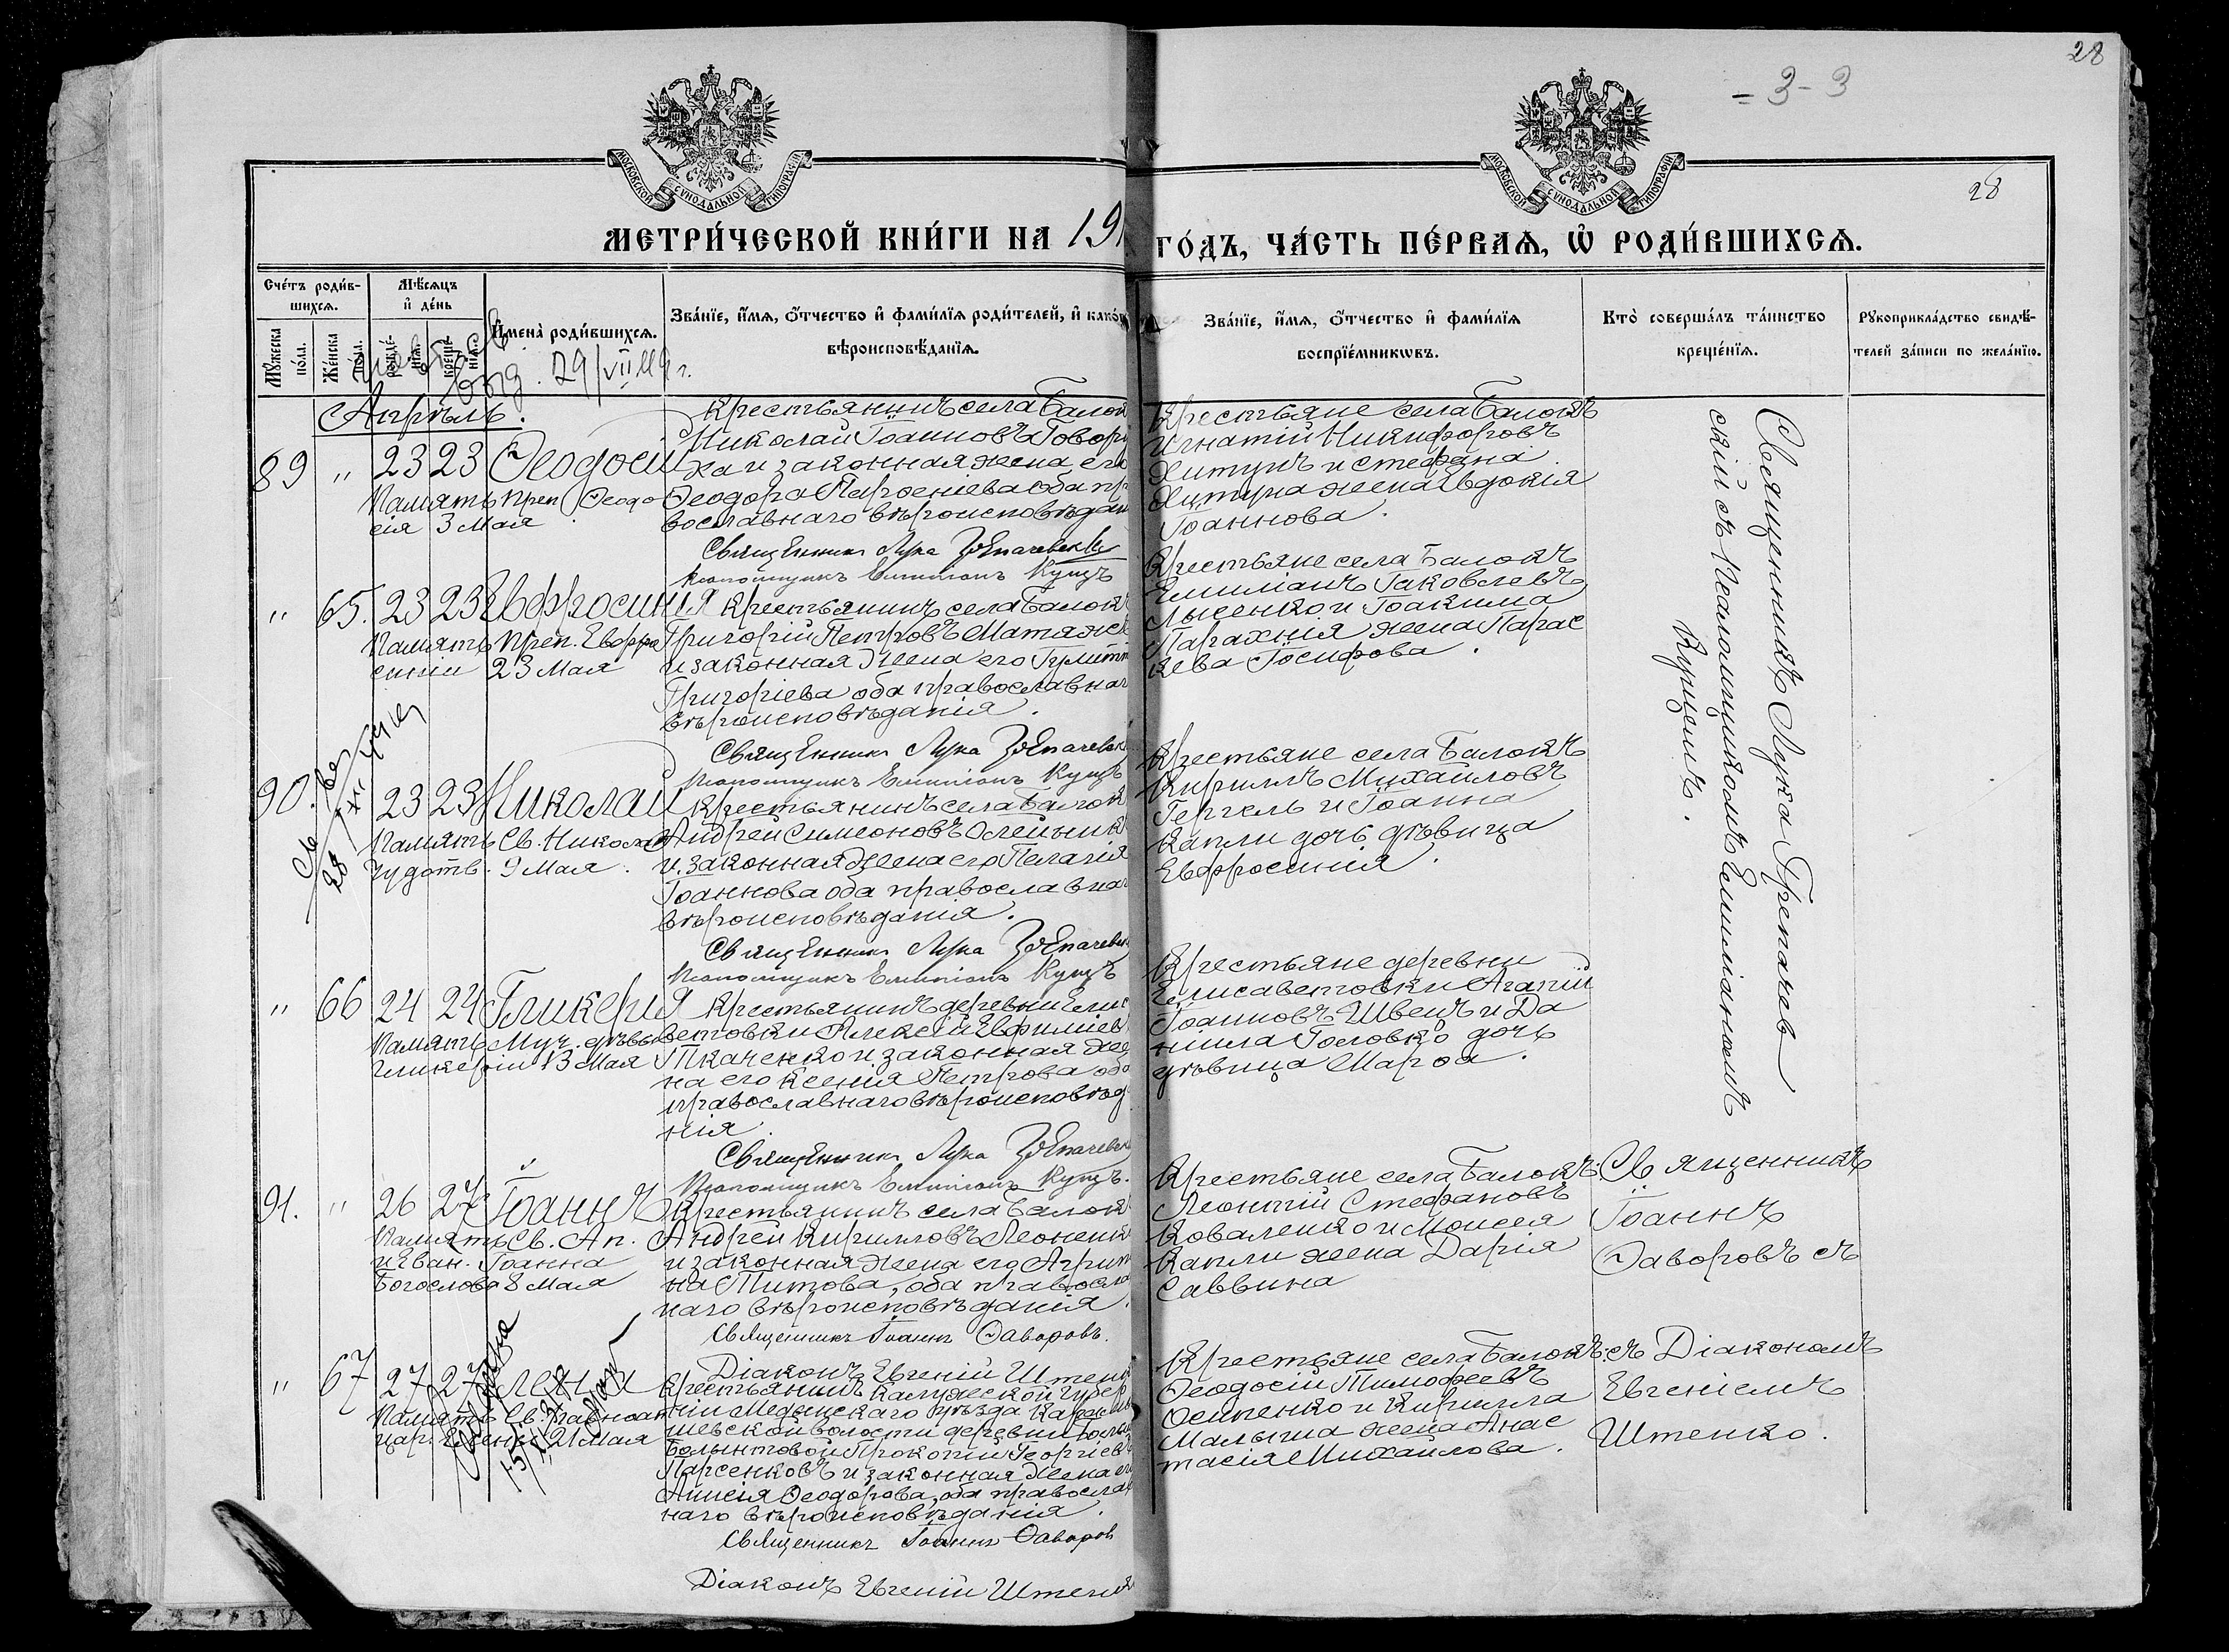 28
= 3 - 3
28
МОСКОВСКОЙ СѴНОДАЛЬНОЙ ТИПОГРАФІИ
МОСКОВСКОЙ СѴНОДАЛЬНОЙ ТИПОГРАФІИ
МЕТРИ́ЧЕСКОЙ КНИ́ГИ НА 19
ГО́ДЪ, ЧА́СТЬ ПЕ́РВАѦ, Ѡ РОДИ́ВШИХСѦ.
Сче́тъ роди́в-
шихсѧ.
Мѣ́сѧцъ
и де́нь
Мꙋ́жеска
по́ла.
Же́нска
по́ла.
рожде́-
нїѧ.
креще́-
нїѧ.
И҆мена̀ роди́вшихсѧ.
29/VII 49 г.
Зва́нїе, и҆́мѧ, ѻ҆́тчество и҆ фами́лїѧ роди́телей, и҆ како́
вѣроисповѣ́данїѧ.
Зва́нїе, и҆́мѧ, ѻ҆́тчество и҆ фами́лїѧ
воспрїе́мникѡвъ.
Кто̀ соверша́лъ та́инство
креще́нїѧ.
Рꙋкоприкла́дство свидѣ́-
телей за́писи по жела́нїю.
Апрѣль.
89 " 23 23 Ѳеодосій
Память Преп. Ѳеодо
сія 3 Мая
Крестьянинъ села Балок
Николай Іоанновъ Говору
ха и законная жена его
Ѳеодора Парѳеніева оба пр
вославнаго вѣроисповѣдан
Священникъ Лука
Псаломщикъ Емиліанъ Куцъ
Крестьяне села Балокъ
Игнатій Никифоровъ
Хитунъ и Стефана
Хитуна жена Евдокія
Іоаннова.
" 65. 23 23 Евфросинія
Память Преп. Евфро
синіи 23 Мая
Крестьянинъ села Балокъ
Григорій Петровъ Матяж
и законная жена его Іулитт
Григоріева оба православнаг
вѣроисповѣданія.
Священникъ Лука
Псаломщикъ Емиліанъ Куцъ
Крестьяне села Балокъ
Емиліанъ Іаковлевъ
Лысенко и Іоакима
Парахнія жена Парас
кева Іосифова.
90. 23 23 Николай
Память Св. Николая
Чудотв. 9 Мая.
Крестьянинъ села Балок
Андрей Симеоновъ Олейник
и законная жена его Пелагія
Іоаннова оба православнаг
вѣроисповѣданія.
Священникъ Лука
Псаломщикъ Емиліанъ Куцъ
Крестьяне села Балокъ
Кириллъ Михайловъ
Гергель и Іоанна
Капли дочь дѣвица
Евфросинія.
" 66 24 24 Гликерія
Память Муч. дѣвы
Гликеріи 13 Мая
Крестьянинъ деревни Елис
ветовки Алексій Евфиміев
Ткаченко и законная же
на его Ксенія Петрова оба
православнаго вѣроисповѣд
нія.
Священникъ Лука
Псаломщикъ Емиліанъ Куцъ.
Крестьяне деревни
Елисаветовки Агапій
Іоанновъ Швецъ и Да
ніила Головко дочь
дѣвица Марѳа.
Священникъ Лука Грепачев
скій съ Псаломщикомъ Емиліаномъ
Куцемъ.
91. " 26 27 Іоаннъ
Память Св. Ап.
и Еван. Іоанна
Богослова 8 Мая
Крестьянинъ села Балок
Андрей Кирилловъ Леонен
и законная жена его Агрип
на Титова, оба правосла
наго вѣроисповѣданія.
Священникъ Іоаннъ Ѳаворовъ.
Діаконъ Евгеній Штен
Крестьяне села Балокъ:
Леонтій Стефановъ
Коваленко и Моисея
Капли жена Дарія
Саввина
Священникъ
Іоаннъ
Ѳаворовъ съ
" 67 27 27 Елена
Память Св. Равноап
цар. Елены 21 Мая
Крестьянинъ Калужской Губер
ніи Медынскаго уѣзда
шевской волости деревни
Прокопій Георгіев
Парсенковъ и законная жена ег
Анисія Ѳеодорова, оба правосла
наго вѣроисповѣданія.
Священникъ Іоаннъ Ѳаворов
Діаконъ Евгеній Штен
Крестьяне села Балокъ:
Ѳеодосій Тимоѳеевъ
Осипенко и Кирилла
Малыша жена Анас
тасія Михайлова.
съ Діакономъ
Евгеніемъ
Штенко.